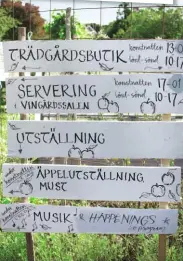 TRÄDGÅRDSBUTIK
lörd-sönd 10-17
SERVERING
I VINGÅRDSSALEN
lörd-sönd 10-17
UTSTÄLLNING
ÄPPELUTSTÄLLNING
MUST
MUSIK & HAPPENINGS